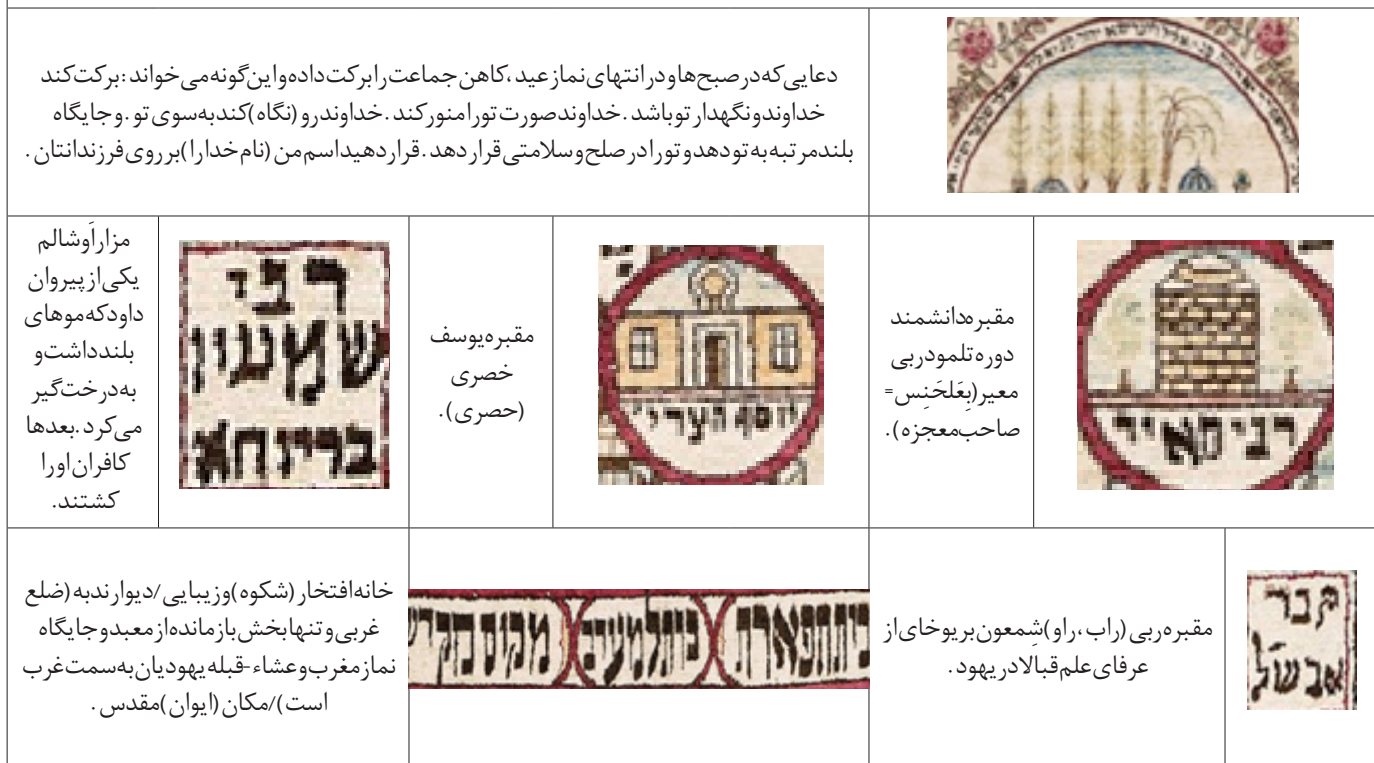 دعایی که در صبح‌ها و در انتهای نماز عید، کاهن جماعت را برکت داده و این گونه می‌خواند: برکت کند
خداوند و نگهدار تو باشد. خداوند صورت تو را منور کند. خداوند رو (نگاه) کند به سوی تو. و جایگاه
بلند مرتبه به تو دهد و تو را در صلح و سلامتی قرار دهد. قرار دهید اسم من (نام خدا را) بر روی فرزندانتان.
רבי מאיר
مقبره دانشمند
دوره تلمود ربی
معیر (بِعَلحَنِس =
صاحب معجزه).
יוסף הצרי'
مقبره یوسف
خصری
(حصری).
רבי
שמעון
בר יוחא
مزار اَوشالم
یکی از پیروان
داود که موهای
بلند داشت و
به درخت گیر
می‌کرد. بعدها
کافران او را
کشتند.
קבר
אבשל
مقبره ربی (راب، راو) شِمعون بر یوخای از
عرفای علم قبالا در یهود.
בית תפארת כותל מערבי מקום מקדש
خانه افتخار (شکوه) و زیبایی/ دیوار ندبه (ضلع
غربی و تنها بخش باز مانده از معبد و جایگاه
نماز مغرب و عشاء - قبله یهودیان به سمت غرب
است)/ مکان (ایوان) مقدس.